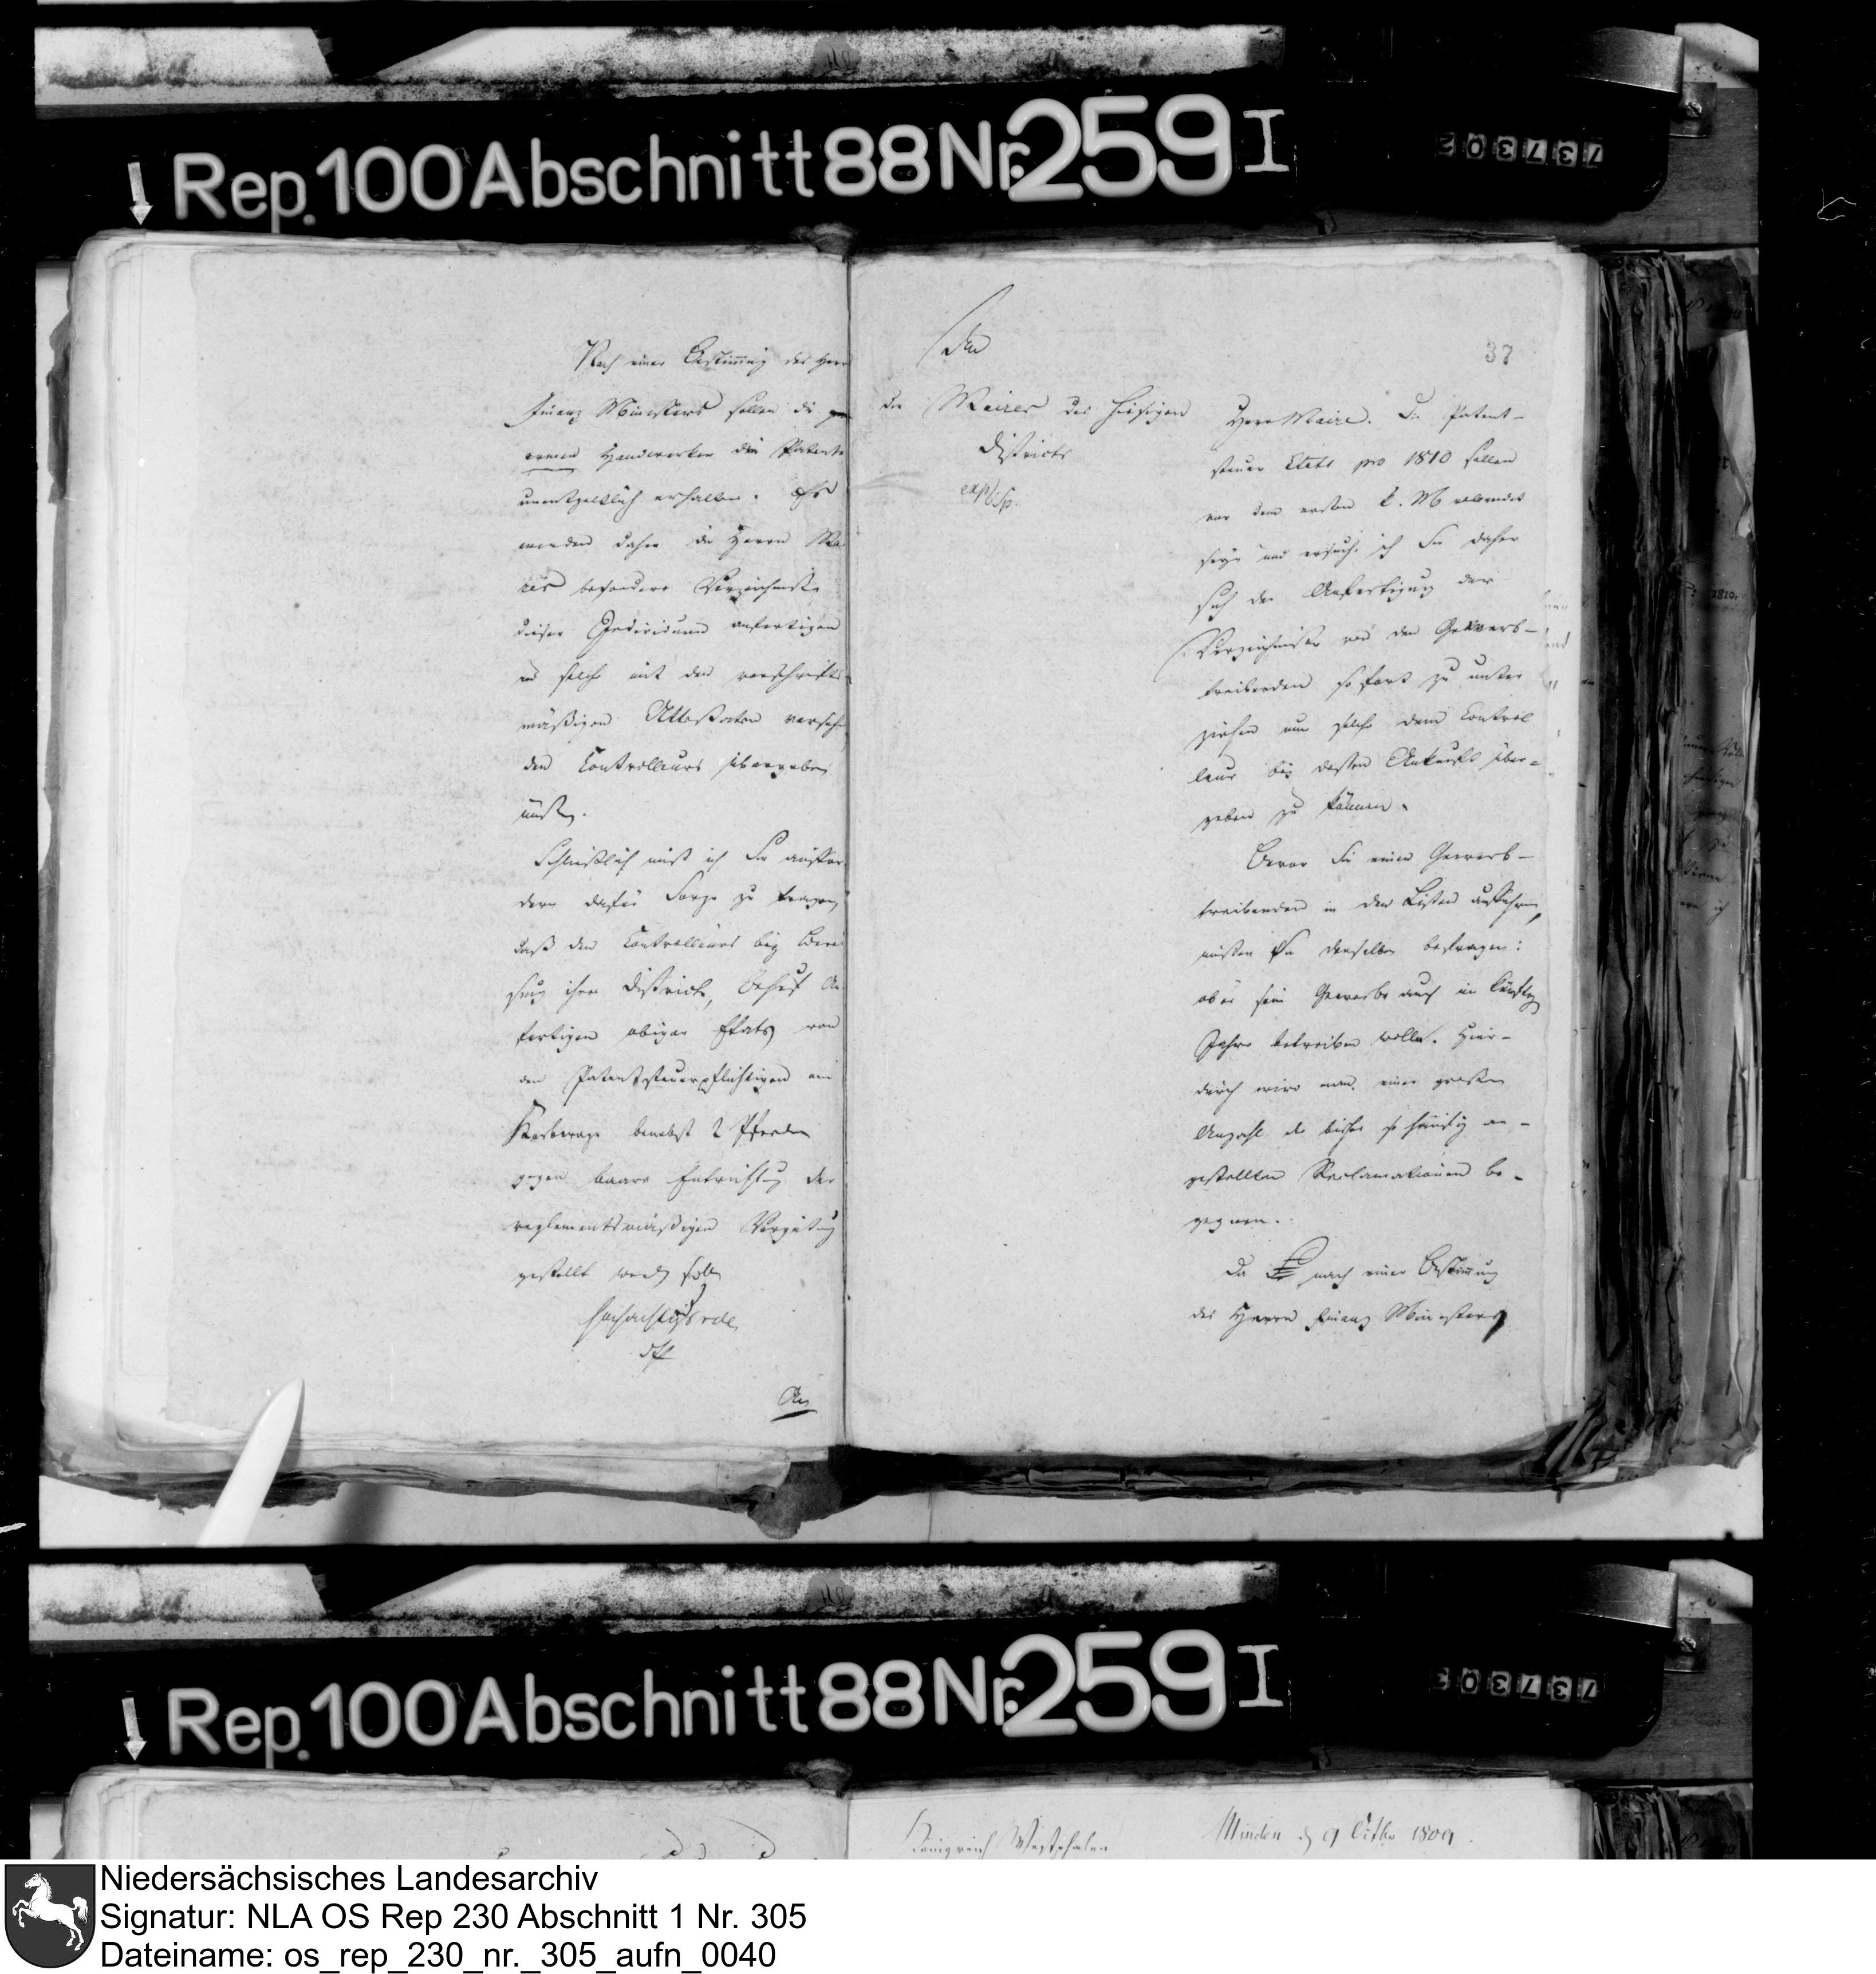 Rep. 100 Abschnitt 88 Nr. 259 I
737302
Nach einer Bestimung des Herrn
Finanz Ministers sollen die
armen Handwerker die Patente
unentgeltlich erhalten. Es
werden daher die Herren Mai
res besondere Verzeichniße
dieser Individuen anfertigen
und solche mit den vorschrifts
mäßigen Attestaten versehen
den Controlleurs übergeben
müßen.
Schlieslich muß ich Sie auffor
dern dafür Sorge zu tragen,
daß den Controlleurs bey Berei
sung ihrer Districte, Behuf An
fertigen obiger Etats von
den Patentsteuerpflichtigen ein
benebst 2 Pferden
gegen baare Entrichtung der
reglementsmäßigen Vergütung
gestellt werden soll
Hochachtungsvoll
An
37
An
die Maires des hiesigen
Districts
Herr Maire. Die Patent-
steuer Etats pro 1810 sollen
vor dem ersten k. M vollendet
seyn und ersuche ich Sie daher
sich der Anfertigung der
Verzeichniße von den Gewerb-
treibenden sofort zu unter
ziehen um solche dem Control
leur bey dessen Ankunft über-
geben zu können.
Bevor Sie einen Gewerb-
treibenden in den Listen aufführen,
müssen Sie denselben befragen:
ob er sein Gewerbe auch im künftigen
Jahre betreiben wolle. Hier-
durch wird man einer großen
Anzahl der bisher so häufig an-
gestellten Reclamationen be-
gegnen.
Da nach einer Bestimmung
des Herrn Finanz Ministers
Rep. 100 Abschnitt 88 Nr. 259 I
737303
Königreich Westphalen
Minden d 9 Octbr 1809.
Niedersächsisches Landesarchiv
Signatur: NLA OS Rep 230 Abschnitt 1 Nr. 305
Dateiname: os_rep_230_nr._305_aufn_0040